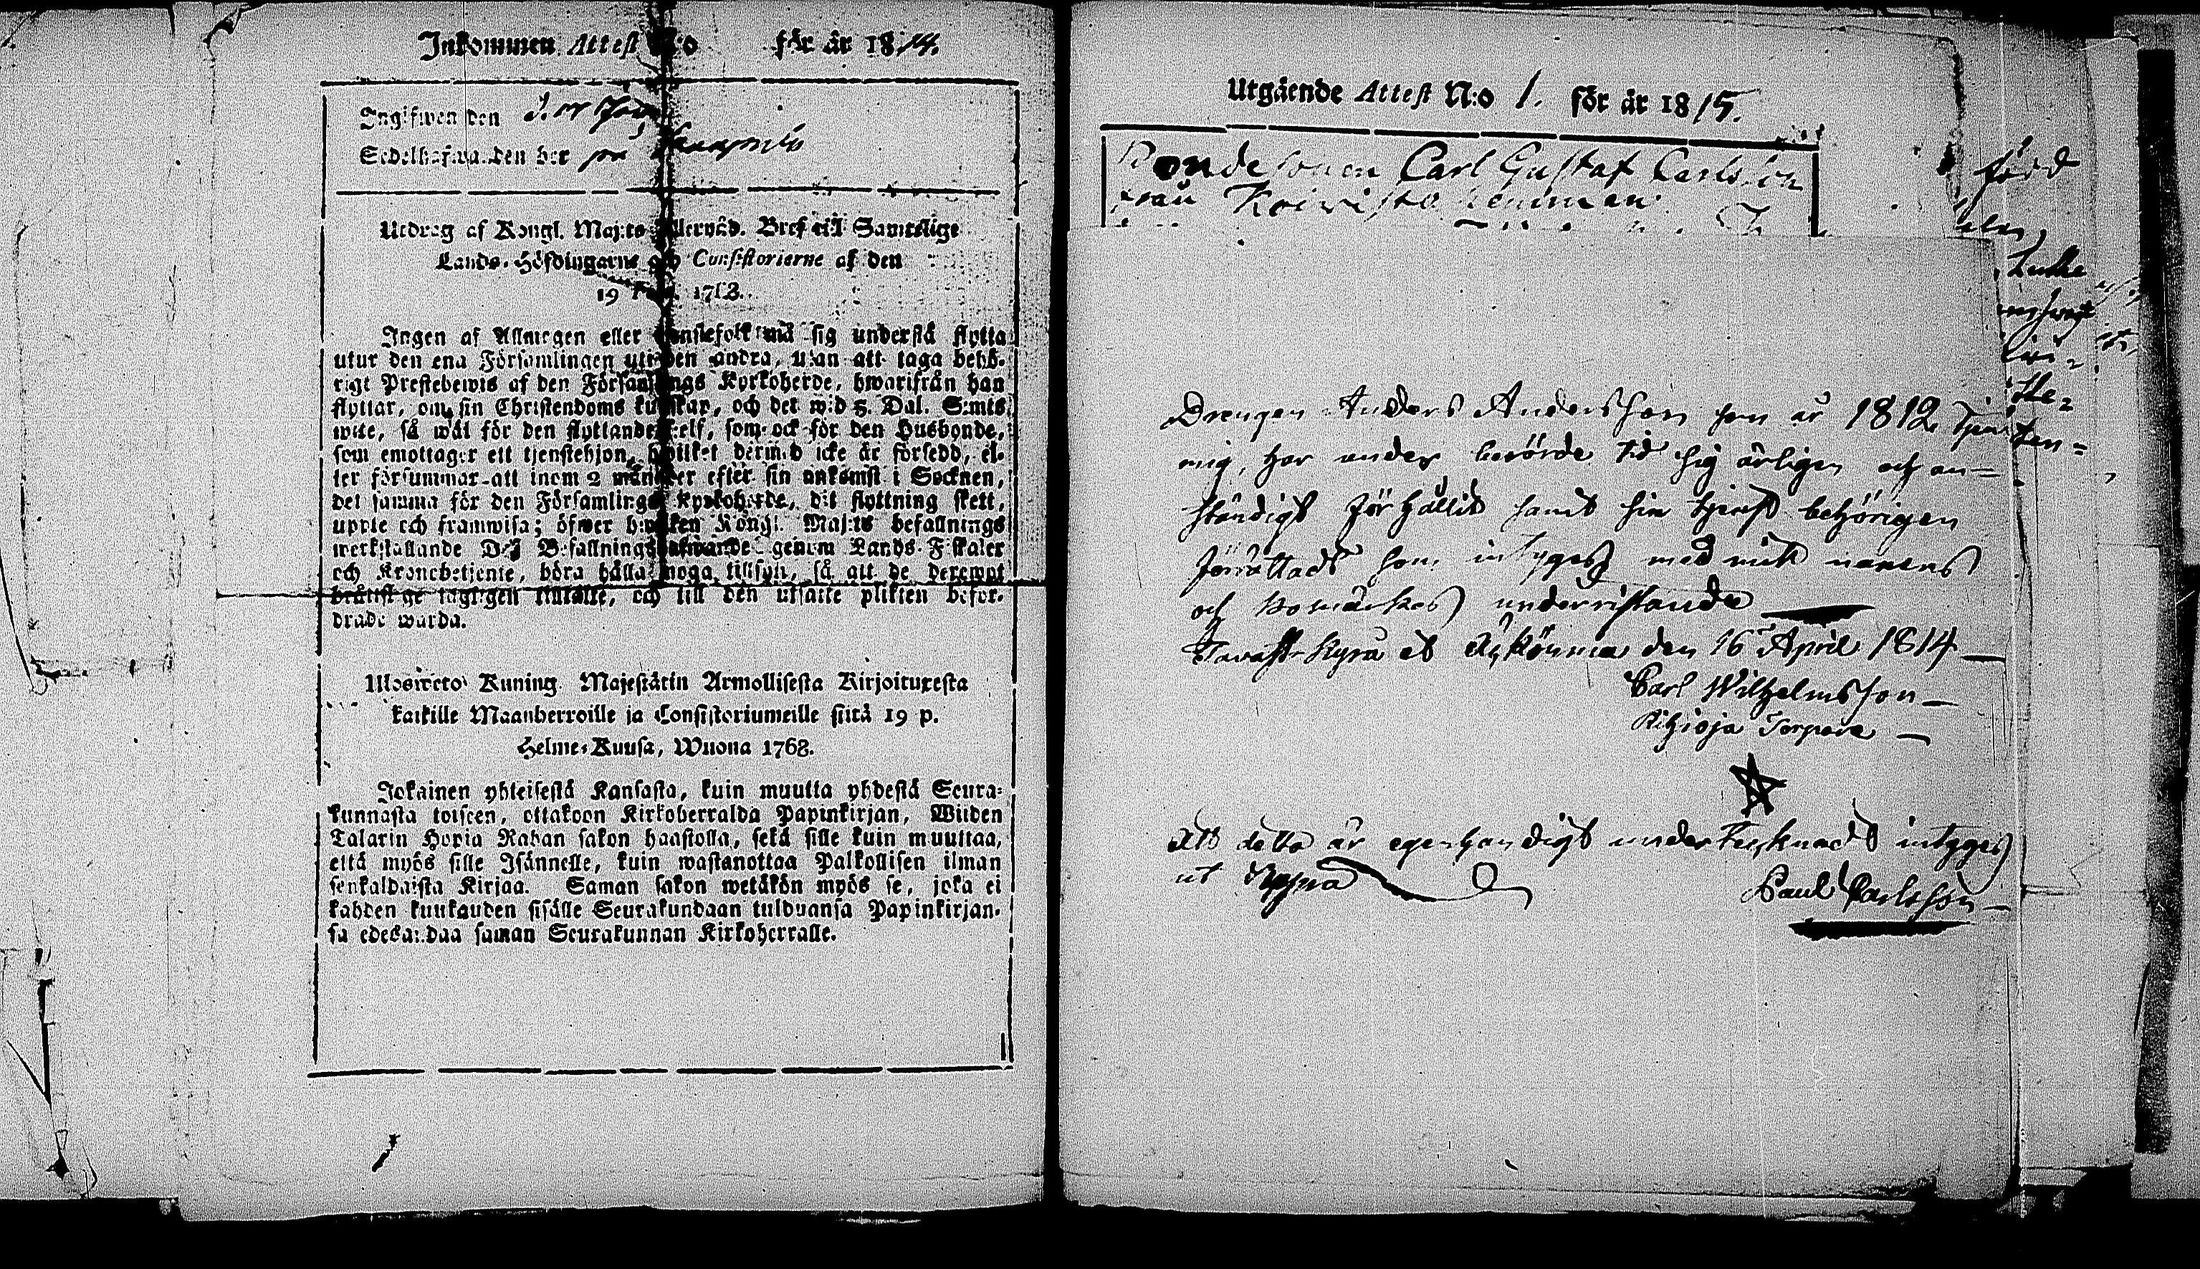 Inkommen Attest N:o för år 1814.
Ingifwen den
Sedelhafwanden bor på
Utdrag af Kongl. Maj:ts Allernåd. Bref till Samtelige
Lands-Höfdingarne och Consistorierne af den
19 1768.
Ingen af Allmogen eller tjenstefolk må sig understå flytta
utur den ena Församlingen uti den andra, utan att taga behö-
rigt Prestebewis af den Församlings Kyrkoherde, hwarifrån han
flyttar, om sin Christendoms kunskap, och det wid 5 Dal. S:mts
wite, så wäl för den flyttande self, som ock för den Husbonde,
som emottager ett tjenstehjon, hwilket dermed icke är försedd, el-
ler försummar att inom 2 månader efter sin ankomst i Socknen,
det samma för den Församlings Kyrkoherde, dit flyttning skett,
upte och framwisa; öfwer hwilken Kongl. Maj:ts befallnings
werkställande Deß Befallningshafwande genom Lands-Fiskaler
och Kronobetjente, böra hålla noga tillsyn, så att de deremot
brottslige lagligen tilltalte, och till den utsatte plikten befor-
drade warda.
Ulosweto Kuning. Majestätin Armollisesta Kirjoituxesta
kaikille Maanherroille ja Consistoriumeille siitä 19 p.
Helme-Kuusa, Wuona 1768.
Jokainen yhteisestä Kansasta, kuin muutta yhdestä Seura-
kunnasta toiseen, ottakoon Kirkoherralda Papinkirjan, Wiiden
Talarin Hopia Rahan sakon haastolla, sekä sille kuin muuttaa,
että myös sille Isännelle, kuin wastanottaa Palkollisen ilman
senkaldaista Kirjaa. Saman sakon wetäkön myös se, joka ei
kahden kuukauden sisälle Seurakundaan tulduansa Papinkirjan-
sa edesandaa saman Seurakunnan Kirkoherralle.
Utgående Attest N:o 1. för år 1815.
Bondesonen Carl Gustaf Carlsson
från Koivisto hemman
Drengen Anders Andersson som år 1812 tjent
mig, har under berörde tid sig ärligen och an-
ständigt förhållit samt sin tjenst behörigen
förrättadt som intygges med mitt namns
och bomärkes underristande
Tavast Kyro et Kyrkönma den 16 April 1814
Carl Wilhelmsson
Torpare
Att detta är egenhändigt underteknadt intygges
ut supra Paul Carlsson
förd